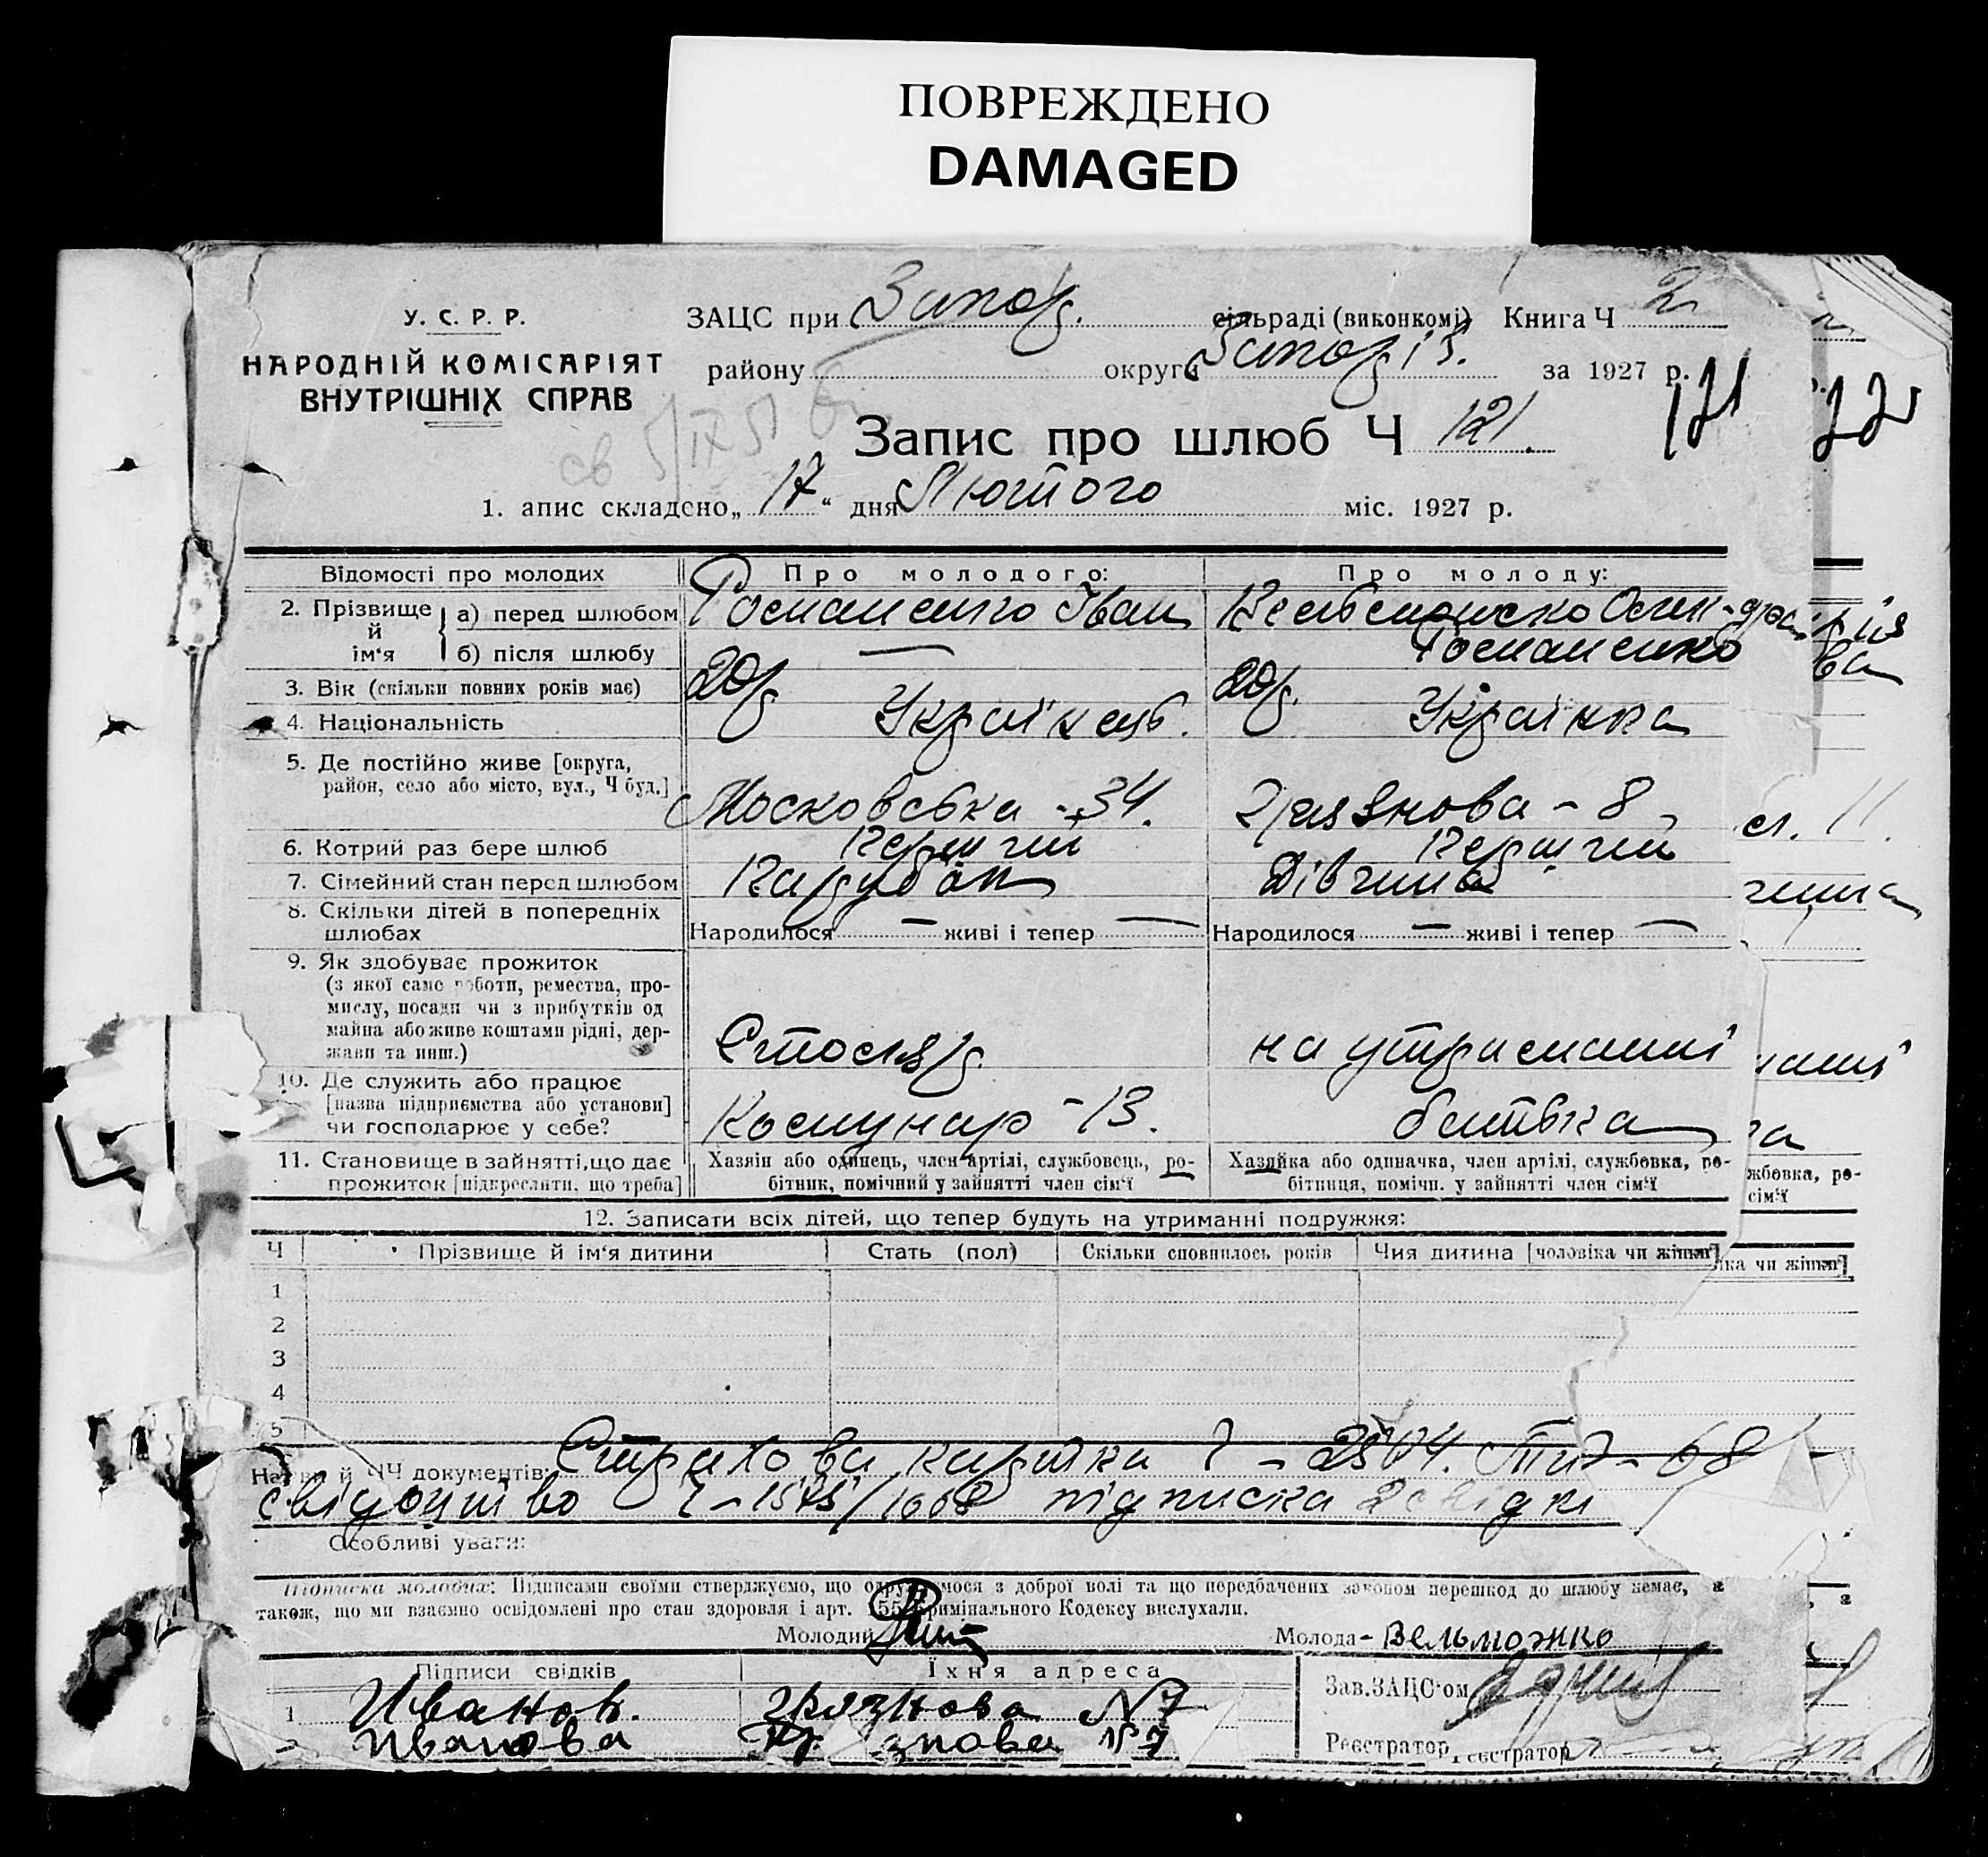 ПОВРЕЖДЕНО
DAMAGED
У. С. Р. Р.
НАРОДНІЙ КОМІСАРІЯТ
ВНУТРІШНІХ СПРАВ
ЗАЦС при Запор. сільраді (виконкомі) Книга Ч 2
району округи Запоріз. за 1927 р.
121
Запис про шлюб Ч 121.
1. апис складено „ 17 “ дня Лютого міс. 1927 р.
Відомості про молодих Про молодого: Про молоду:
2. Прізвище й ім‘я а) перед шлюбом Романенко Іван Вельможко Олек-дра
б) після шлюбу — Романенко
3. Вік (скільки повних років має) 20р. 20р.
4. Національність Українець. Українка
5. Де постійно живе [округа,
район, село або місто, вул., Ч буд.] Московська - 34. Грязнова - 8
6. Котрий раз бере шлюб Перший Перший
7. Сімейний стан перед шлюбом Парубок Дівчина
8. Скільки дітей в попередніх
шлюбах Народилося — живі і тепер — Народилося — живі і тепер —
9. Як здобуває прожиток
(з якої саме роботи, ремества, про-
мислу, посади чи з прибутків од
майна або живе коштами рідні, дер-
жави та инш.) Столяр. на утриманні
10. Де служить або працює
[назва підприємства або установи]
чи господарює у себе? Комунар - 13. батька
11. Становище в зайнятті, що дає
прожиток [підкреслити, що треба]
Хазяін або одинець, член артілі, службовець, ро-
бітник, помічний у зайнятті член сім‘ї
Хазяйка або одиначка, член артілі, службовка, ро-
бітниця, помічн. у зайнятті член сім‘ї
12. Записати всіх дітей, що тепер будуть на утриманні подружжя:
Ч Прізвище й ім‘я дитини Стать (пол) Скільки сповнилось років Чия дитина [чоловіка чи жінки]
1
2
3
4
5
Назви й ЧЧ документів: Страхова картка Ч - 2504. - 68
свідоцтво Ч - 1575/1668 підписка 2 свідкі
Особливі уваги:
Підписка молодих: Підписами своїми стверджуємо, що одружуємося з доброї волі та що передбачених законом перешкод до шлюбу немає, а
також, що ми взаємно освідомлені про стан здоровля і арт. 155 Кримінального Кодексу вислухали.
Молодий Молода - Вельможко
Підписи свідків Їхня адреса
1 Иванов. Грязнова N 7
2 Иванова Грязнова № 7
Зав. ЗАЦС‘ом
Реєстратор
Реєстратор
ка чи жінки]
жбовка, ро-
сім‘ї